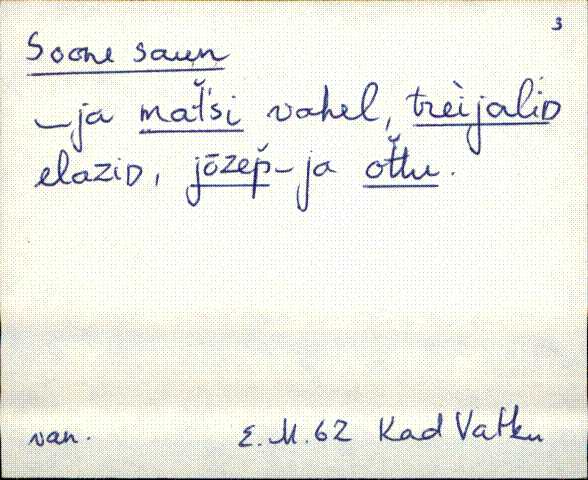 3
Soone saun
– ja mat̆'si vahel, trèijaliD
elaziD, jōzep̆ – ja ot̆tu.
van. E.M. 62 Kad Vatku